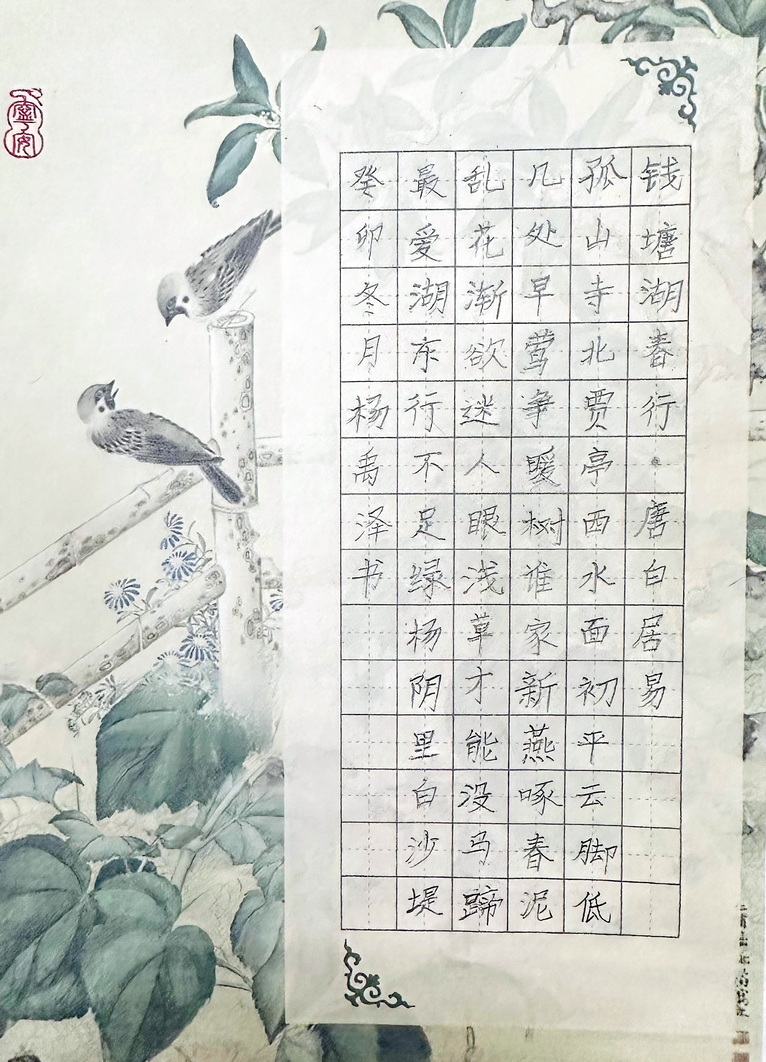 钱塘湖春行·唐白居易
孤山寺北贾亭西水面初平云脚低
几处早莺争暖树谁家新燕啄春泥
乱花渐欲迷人眼浅草才能没马蹄
最爱湖东行不足绿杨阴里白沙堤
癸卯冬月杨禹泽书